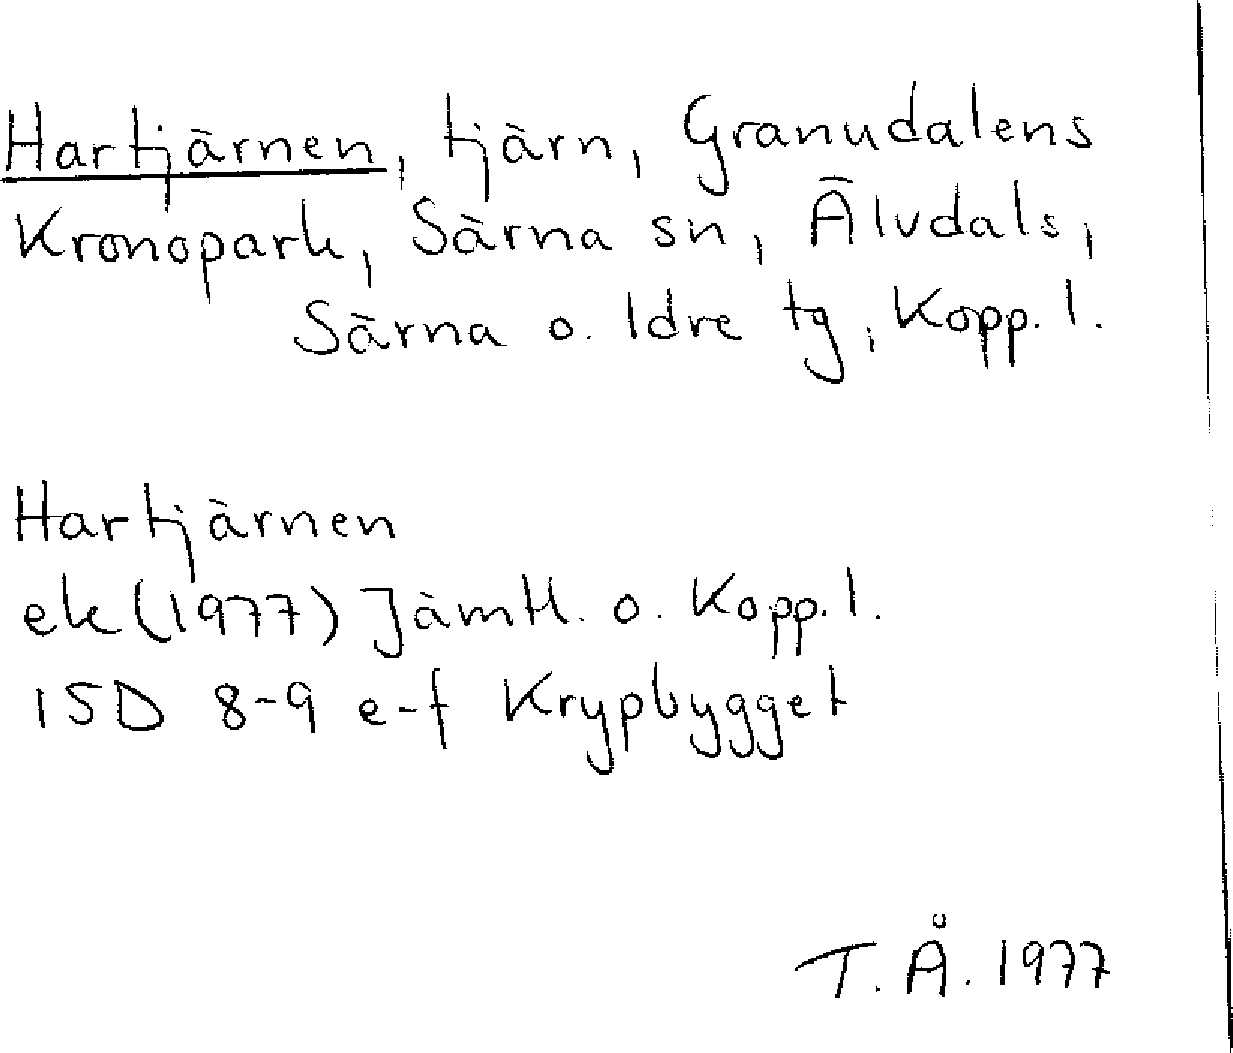 Hartjärnen, tjärn, Granudalens
Kronopark, Särna sn, Älvdals,
Särna o. Idre tg, Kopp. l.
Hartjärnen
ek (1977) Jämtl. o. Kopp. l.
15D 8-9 e-f Krypbygget
T. Å. 1977